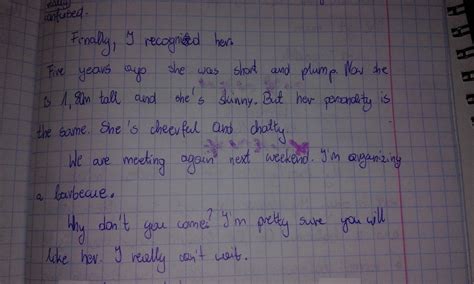 really
confused.
Finally, I recognized her.
Five years ago she was short and plump. Now she
is 1,80m tall and she's skinny. But her personality is
the same. She's cheerful and chatty
We are meeting again next weekend. I'm organizing
a barbecue.
Why don't you come? I'm pretty sure you will
like her. I really can't wait.